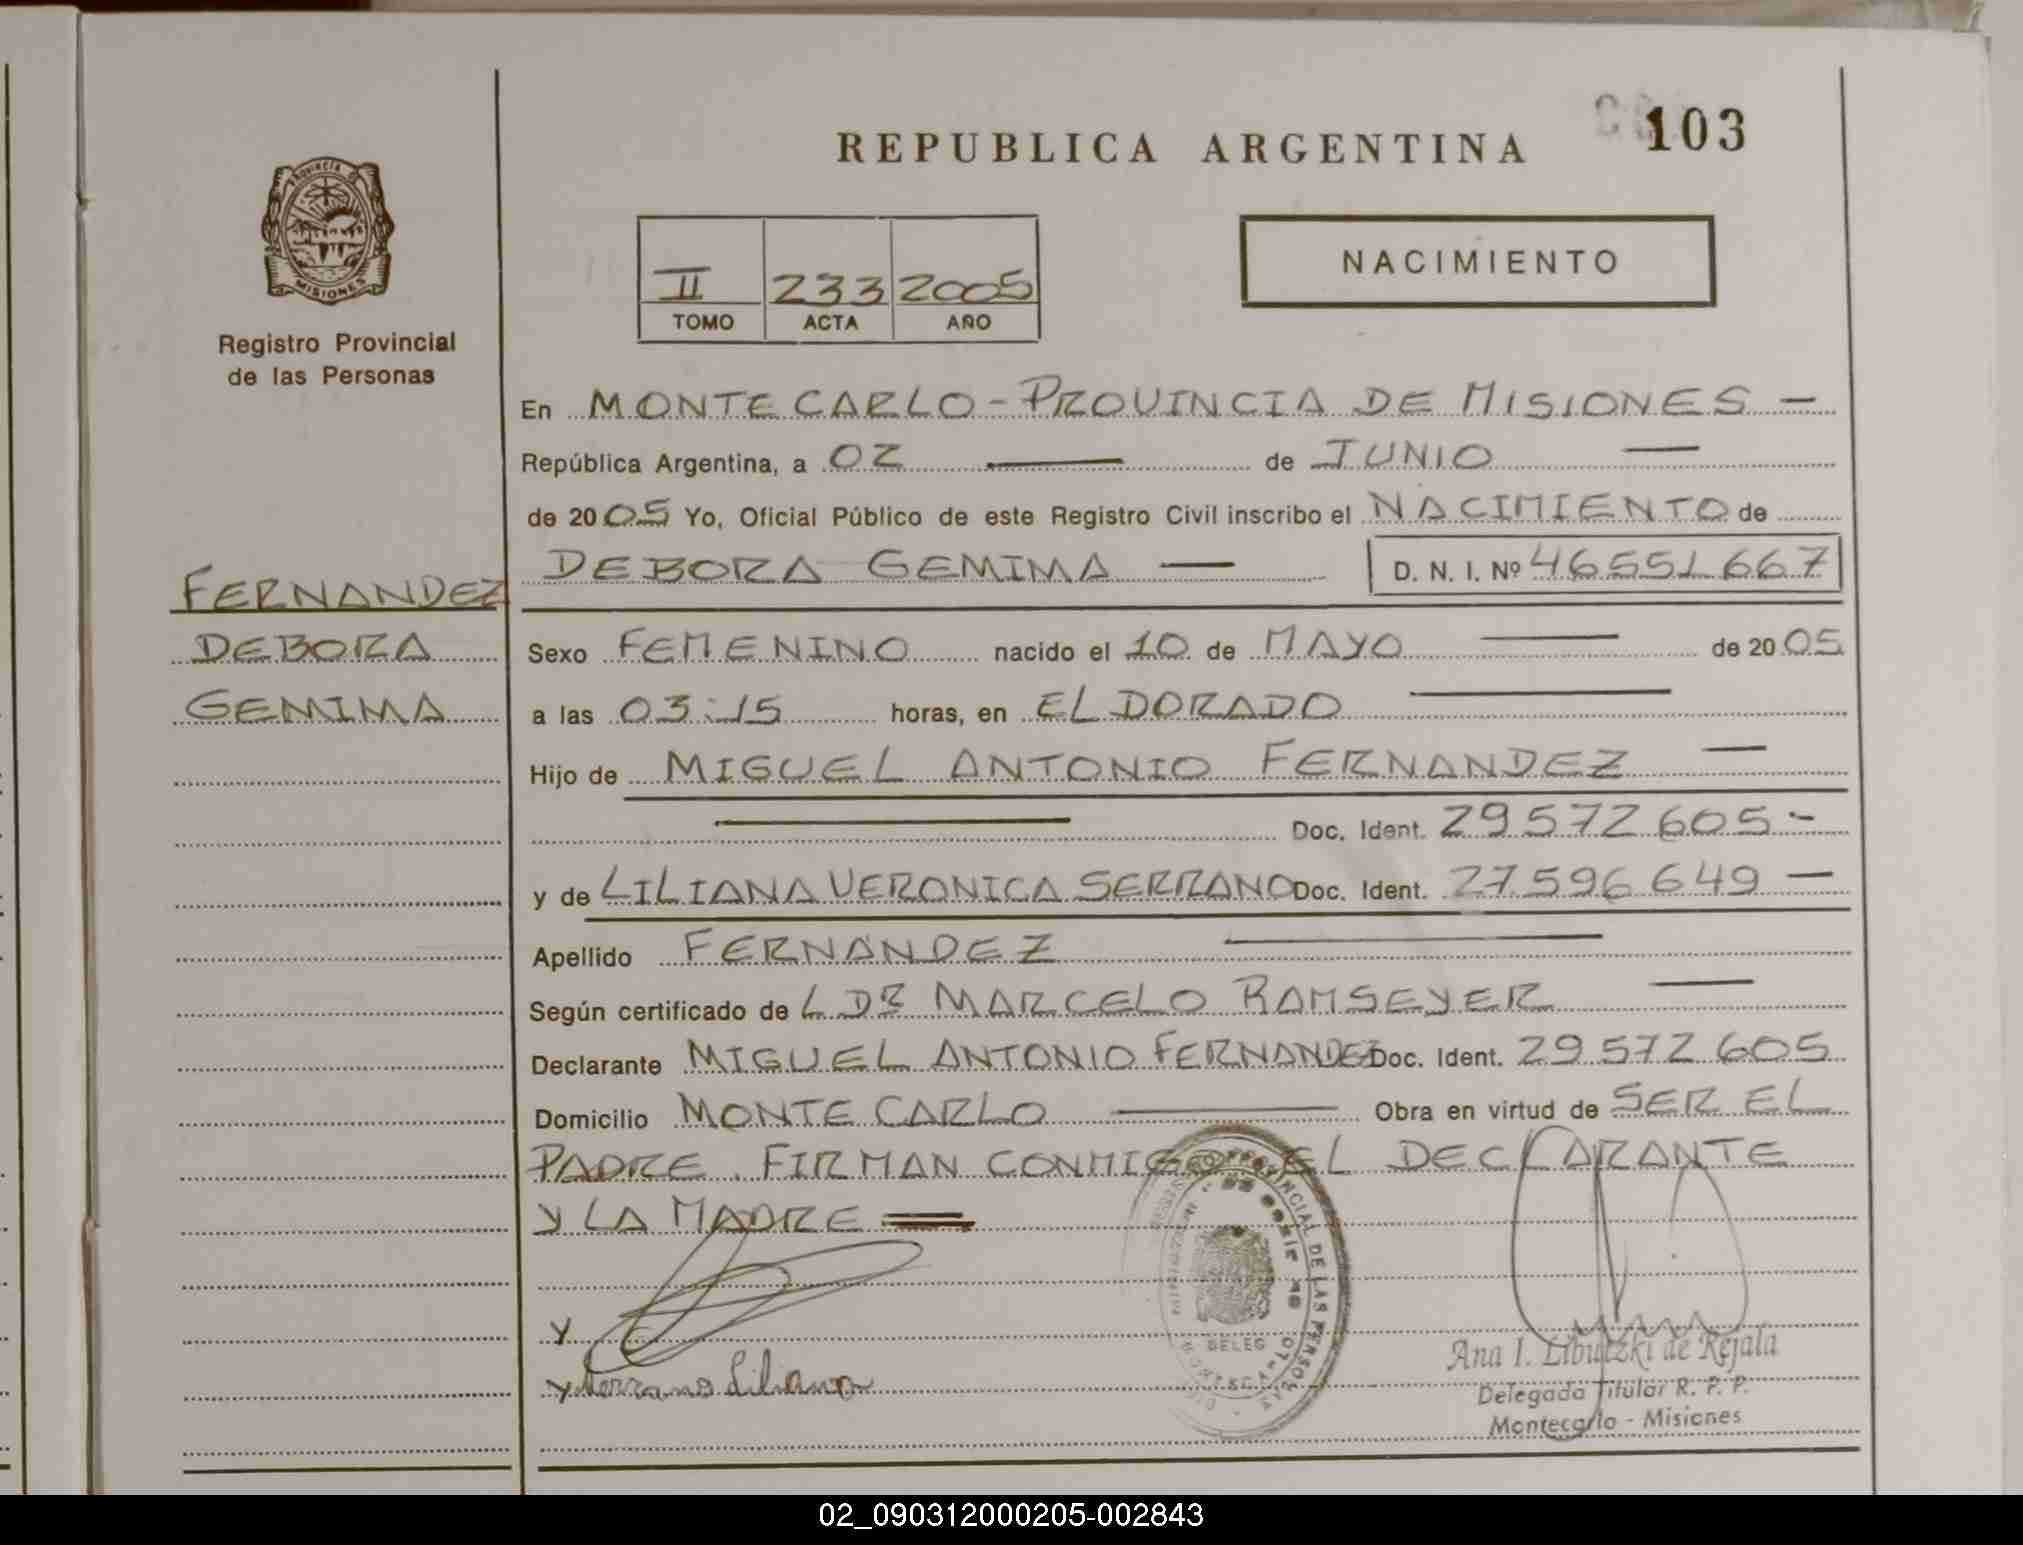 REPUBLICA ARGENTINA
103
PROVINCIA DE
MISIONES
Registro Provincial
de las Personas
II 233 2005
TOMO ACTA AÑO
NACIMIENTO
En MONTECARLO - PROVINCIA DE MISIONES -
República Argentina, a 02 de JUNIO
de 2005 Yo, Oficial Público de este Registro Civil inscribo el NACIMIENTO de
DEBORA GEMIMA D. N. I. Nº 46551667
FERNANDEZ
DEBORA
GEMIMA
Sexo FEMENINO nacido el 10 de MAYO de 2005
a las 03:15 horas, en ELDORADO
Hijo de MIGUEL ANTONIO FERNANDEZ
Doc. Ident. 29572605-
y de LILIANA VERONICA SERRANO Doc. Ident. 27.596.649 -
Apellido FERNANDEZ
Según certificado de DR MARCELO RAMSEYER
Declarante MIGUEL ANTONIO FERNANDEZ Doc. Ident. 29572605
Domicilio MONTECARLO Obra en virtud de SER EL
PADRE. FIRMAN CONMIGO EL DECLARANTE
Y LA MADRE
Y
y Serrano Liliana
PROVINCIAL DE LAS PERSONAS
DELEG
Ana I. Libutzki de Rejala
Delegada Titular R. P. P.
Montecarlo - Misiones
02_090312000205-002843